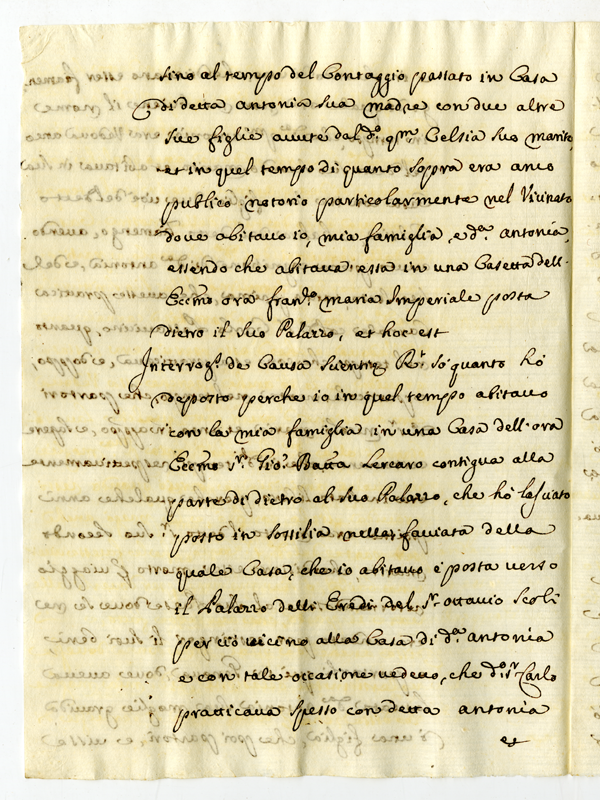 sino al tempo del Contaggio passato in Casa
di detta Antonia sua madre con due altre
sue figlie avute dal d.º qm. Celsia suo marito,
et in quel tempo di quanto soppra era anco
publico, notorio particolarmente nel Vicinato
dove abitavo io, mia famiglia, e d.ª Antonia,
essendo che abitava essa in una Casetta dell'
Eccmo ora fran.º maria Imperiale posta
dietro il suo Palazzo, et hoc est
Interrog.s de Causa scientiæ R.t so quanto hò
deposto perche io in quel tempo abitavo
con la mia famiglia in una Casa dell'ora
Eccmo s.r Gio: Batta Lercaro contigua alla
parte di dietro al suo Palazzo, che hò lasciato
posto in Sottilia nella facciata della
quale Casa, che io abitavo è posta verso
il Palazzo delli Eredi del s.r ottavio Scoli
per ciò vicino alla Casa di d.ª antonia
e con tale occasione vedevo, che d.º s.r Carlo
pratticava spesso con detta antonia
et